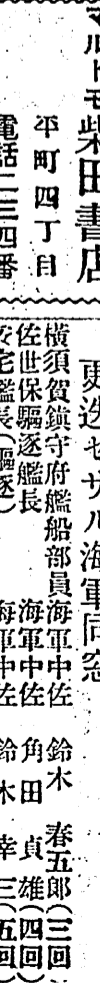 マルトモ柴田書店
平町四丁目
電話二三四番
更迭セザル海軍同窓
横須賀鎭守府艦船部員海軍中佐 鈴木 春五郎(三回
佐世保驅逐艦長 海軍中佐 角田 貞雄(四回)
安宅艦長(驅逐) 海軍中佐 鈴木 幸三(五回